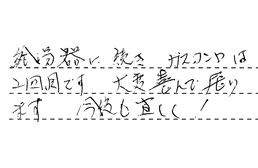 給湯器に続き ガスコンロは
2回目です 大変喜んで居り
ます 今後も宜しく!